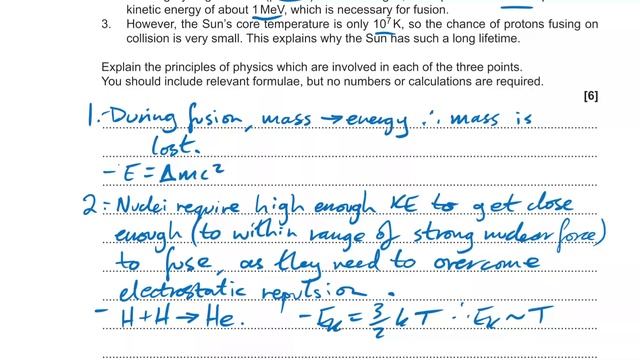 kinetic energy of about 1 MeV, which is necessary for fusion.
3. However, the Sun's core temperature is only 10⁷ K, so the chance of protons fusing on
collision is very small. This explains why the Sun has such a long lifetime.
Explain the principles of physics which are involved in each of the three points.
You should include relevant formulae, but no numbers or calculations are required.
[6]
1. - During fusion, mass → energy ∴ mass is
lost.
- E = Δmc²
2 - Nuclei require high enough KE to get close
enough (to within range of strong nuclear force)
to fuse, as they need to overcome
electrostatic repulsion.
- H + H → He. - Eₖ = 3/2 kT ∴ Eₖ ~ T